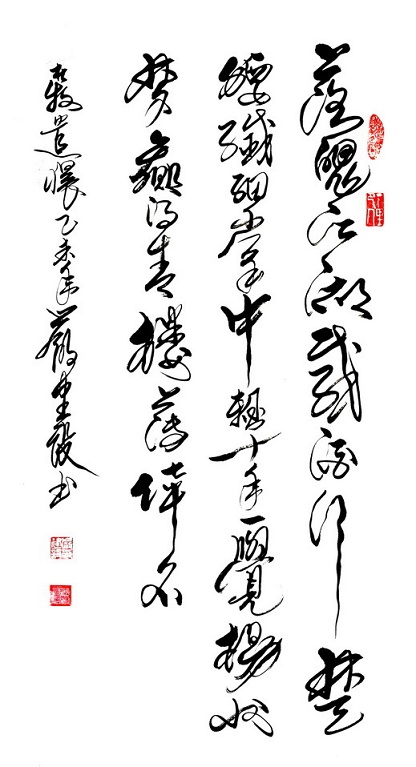 落魄江湖載酒行楚
腰纖細掌中輕十年一覺揚州
夢贏得青樓薄倖名
杜牧遣懷乙未年書